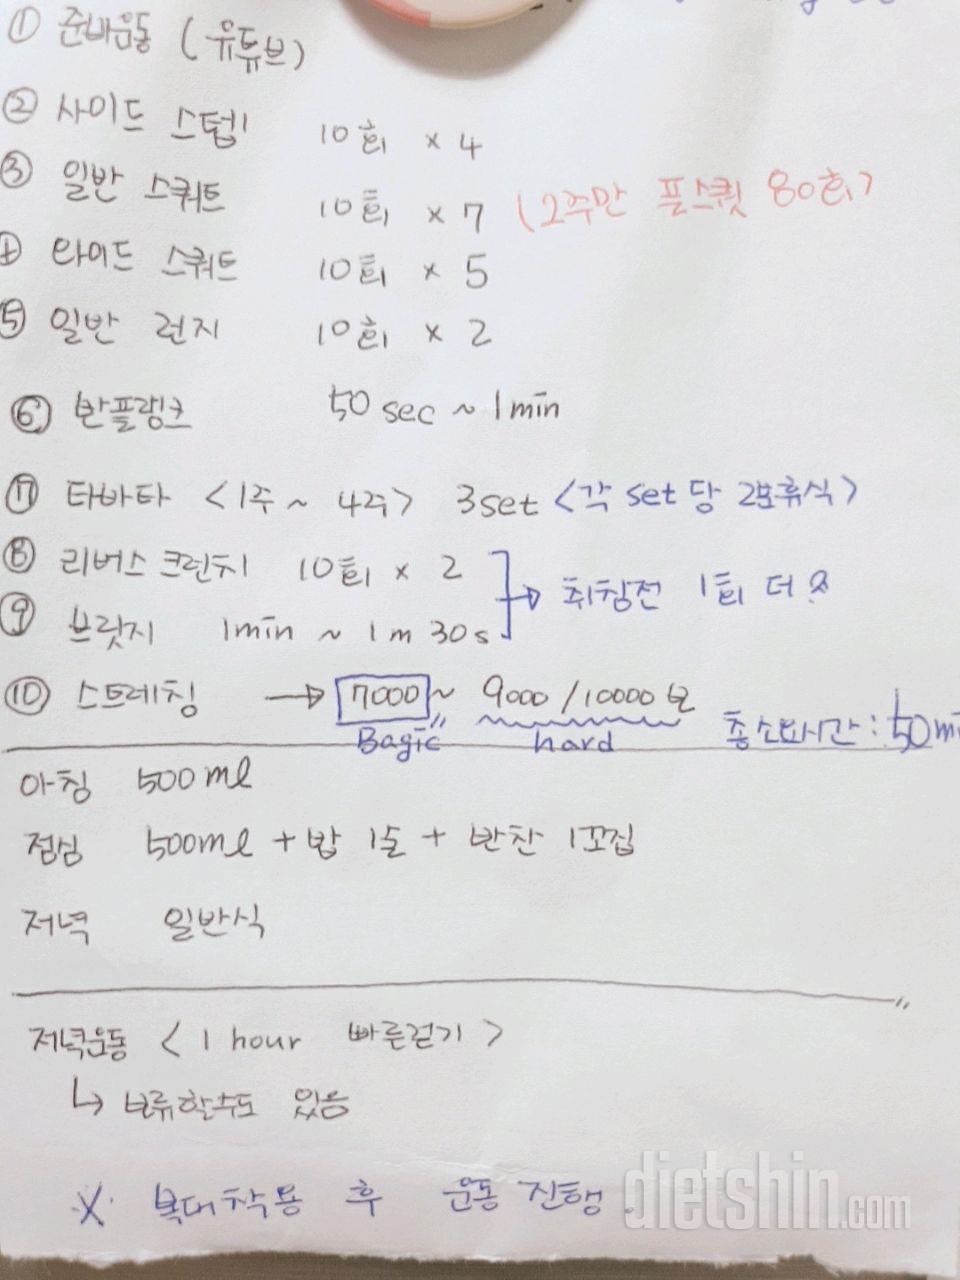 ① 준비운동 (유튜브)
② 사이드 스텝 10회 × 4
③ 일반 스쿼트 10회 × 7 (2주만 풀스쿼 80회)
④ 와이드 스쿼트 10회 × 5
⑤ 일반 런지 10회 × 2
⑥ 반플랭크 50 sec ~ 1 min
⑦ 타바타 <1주 ~ 4주> 3set <각 set 당 2분휴식>
⑧ 리버스 크런치 10회 × 2
⑨ 브릿지 1min ~ 1m 30s → 취침전 1회 더
⑩ 스트레칭 → 7000 ~ 9000 / 10000 보
Bagic hard 총소요시간 : 50mi
아침 500ml
점심 500ml + 밥 1술 + 반찬 1꼬집
저녁 일반식
저녁운동 < 1 hour 빠른걷기 >
↳ 보류할수도 있음
※ 복대착용 후 운동 진행.
dietshin.com